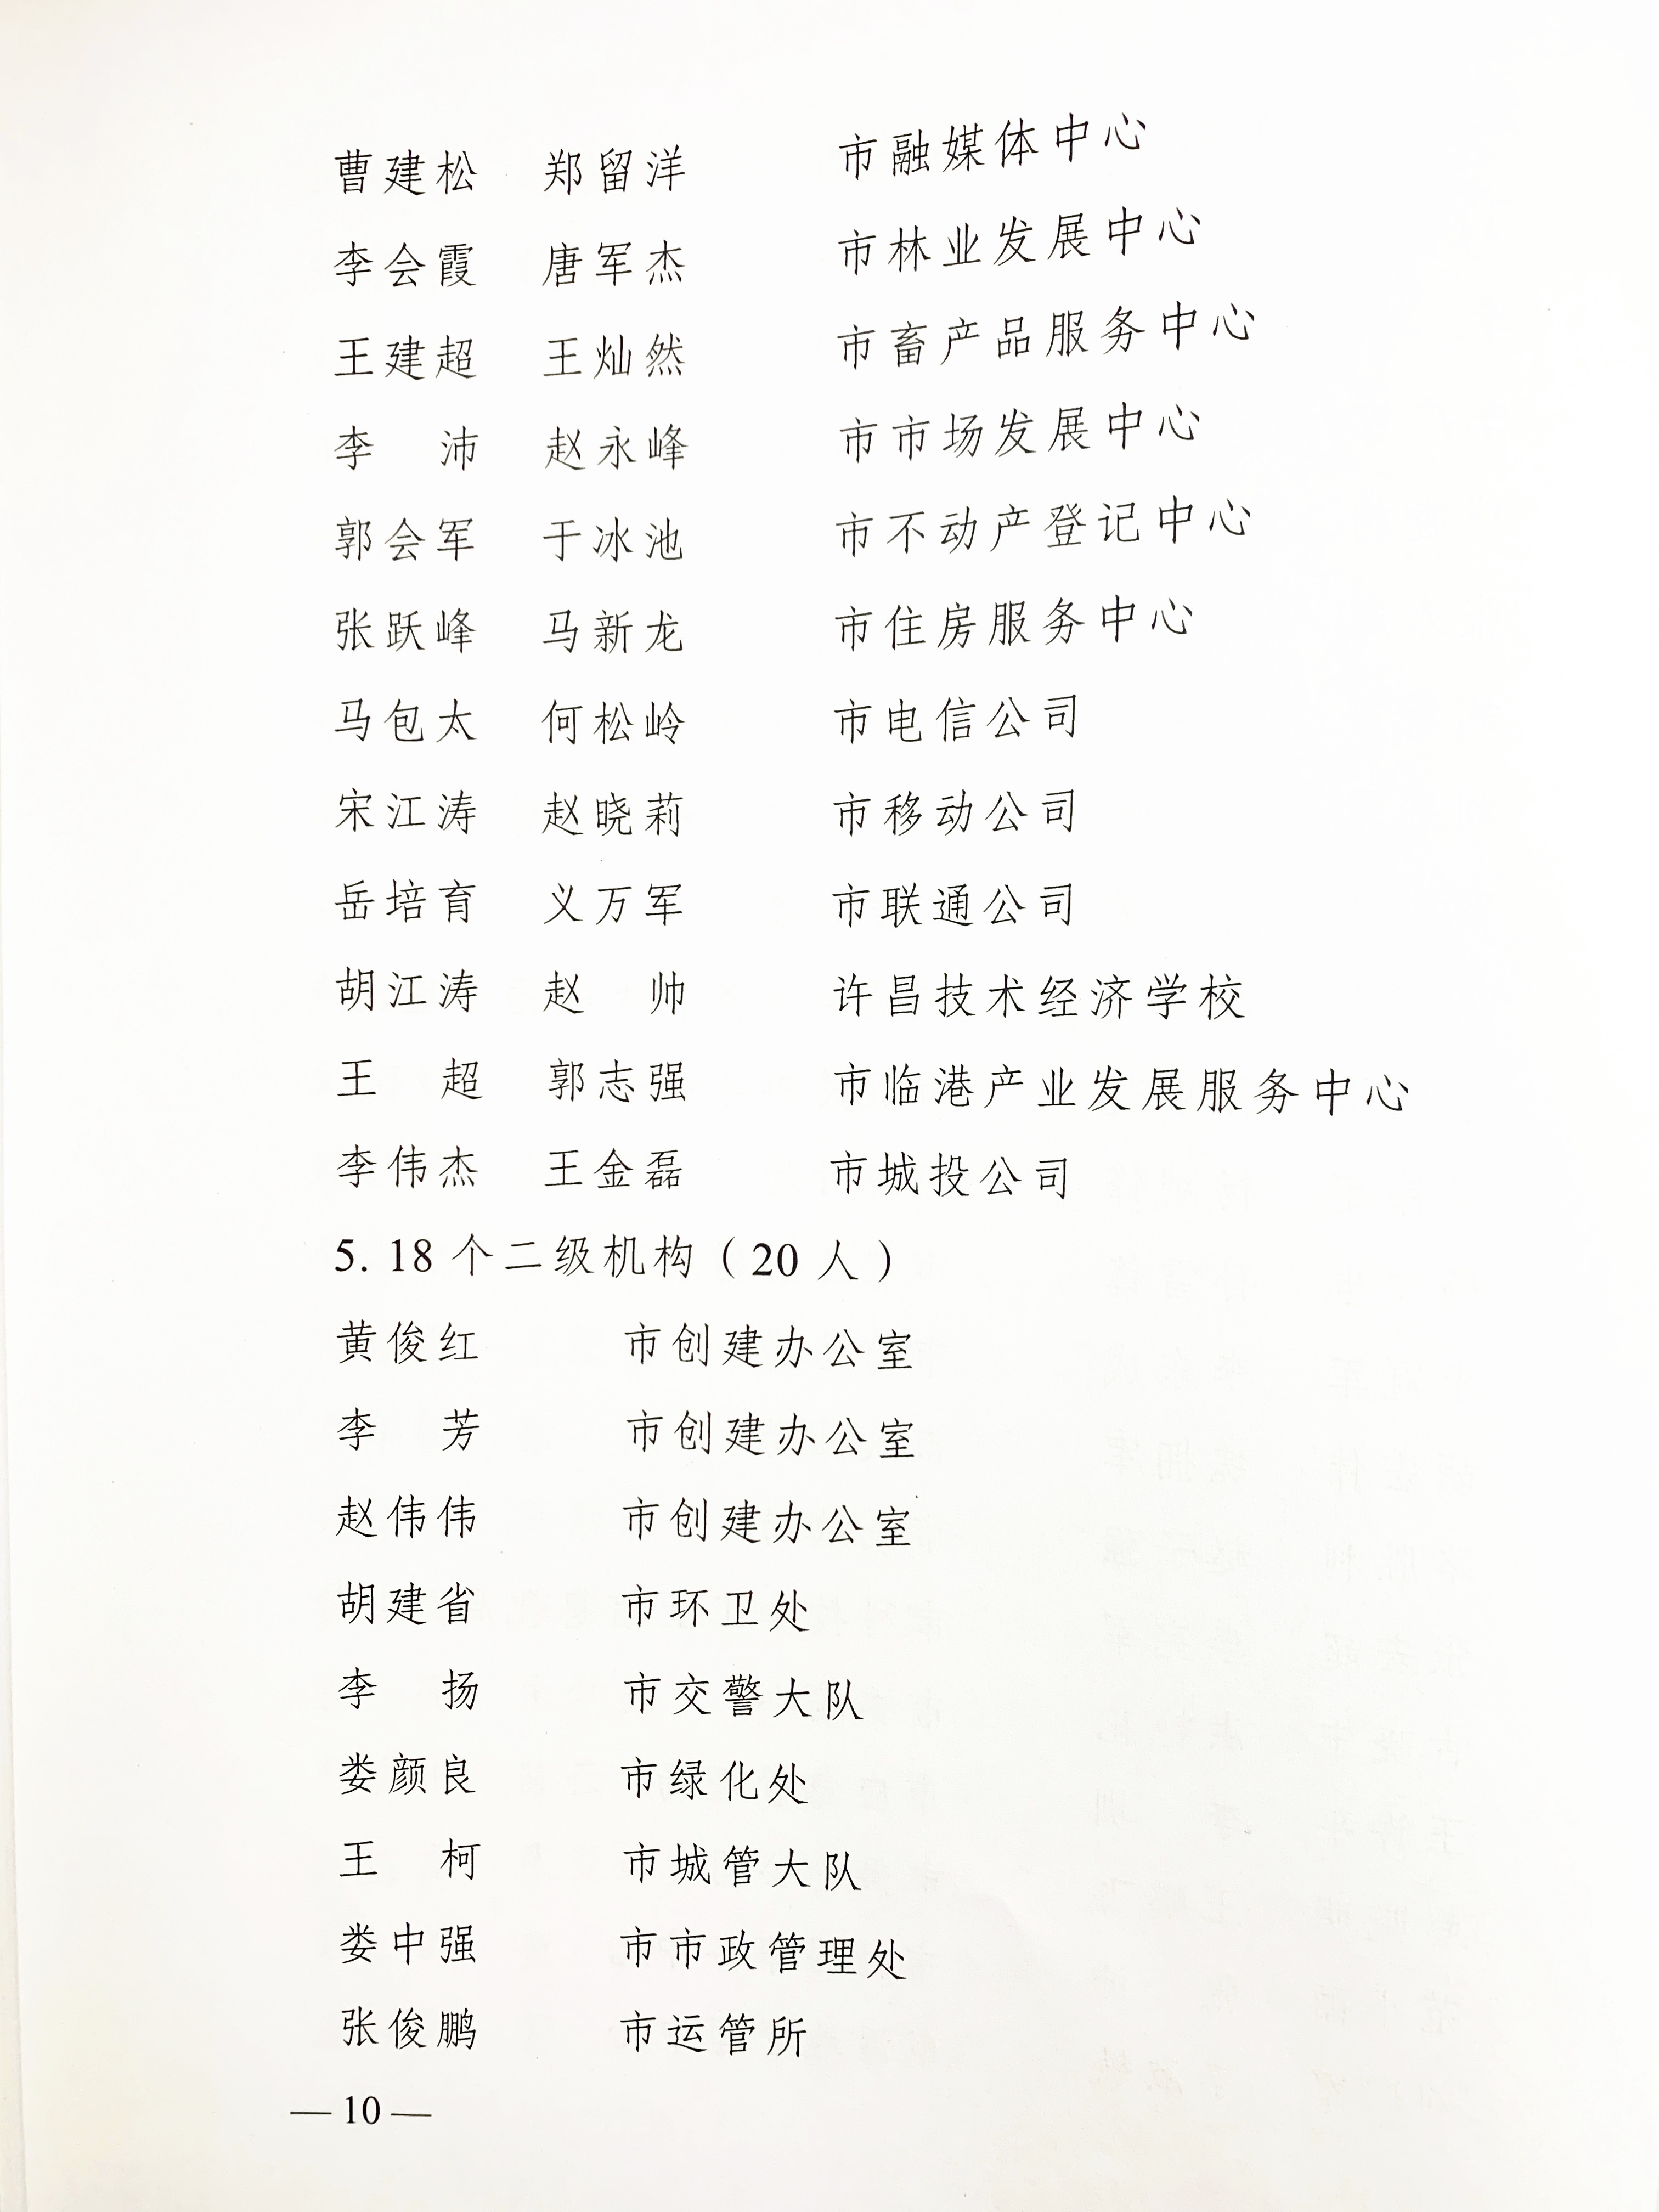 曹建松 郑留洋 市融媒体中心
李会霞 唐军杰 市林业发展中心
王建超 王灿然 市畜产品服务中心
李 沛 赵永峰 市市场发展中心
郭会军 于冰池 市不动产登记中心
张跃峰 马新龙 市住房服务中心
马包太 何松岭 市电信公司
宋江涛 赵晓莉 市移动公司
岳培育 义万军 市联通公司
胡江涛 赵 帅 许昌技术经济学校
王 超 郭志强 市临港产业发展服务中心
李伟杰 王金磊 市城投公司
5. 18 个二级机构（20 人）
黄俊红 市创建办公室
李 芳 市创建办公室
赵伟伟 市创建办公室
胡建省 市环卫处
李 扬 市交警大队
娄颜良 市绿化处
王 柯 市城管大队
娄中强 市市政管理处
张俊鹏 市运管所
— 10 —